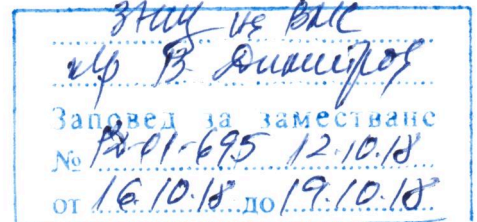 В. Димитров
Заповед за заместване
№ РД-01-695 / 12.10.18
от 16.10.18 до 19.10.18